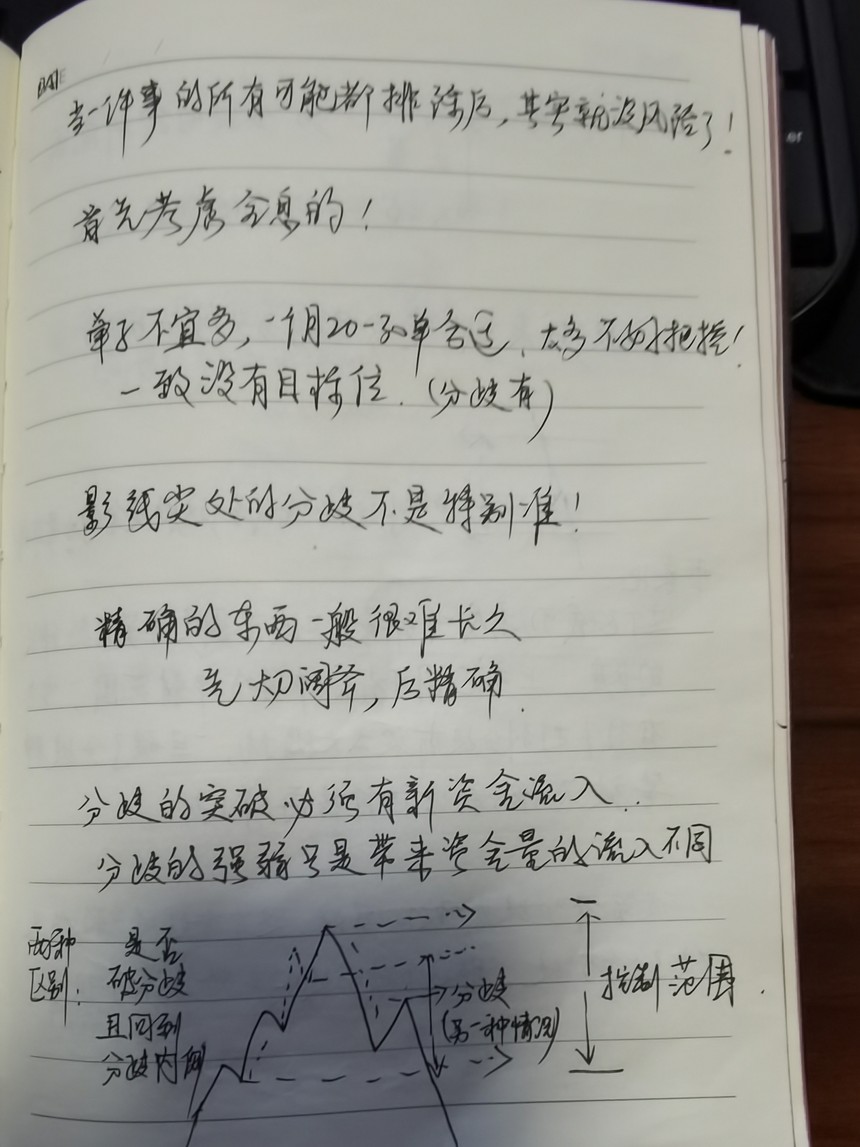 DATE
当一件事的所有可能都排除后，其实就没风险了！
首先考虑全息的！
单子不宜多，一个月20-30单合适，太多不好把握！
一致没有目标位.（分歧有）
影线尖处的分歧不是特别准！
精确的东西一般很难长久
先大刀阔斧，后精确.
分歧的突破必须有新资金流入..
分歧的强弱只是带来资金量的流入不同
两种区别：
是否
破分歧
且回到
分歧内侧
分歧
(另一种情况)
控制范围.